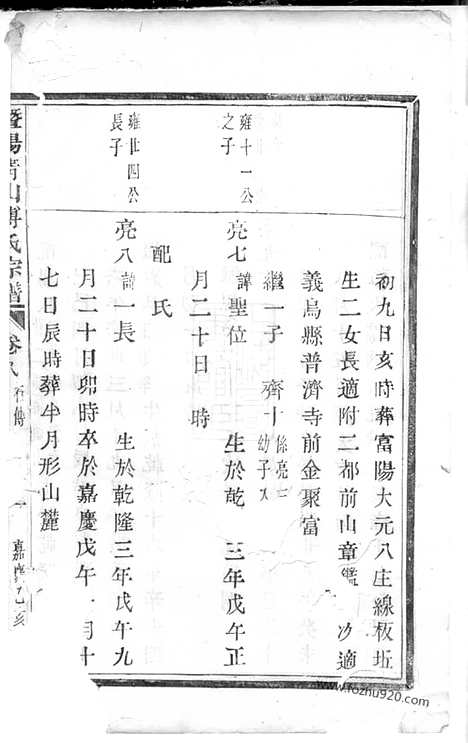 初九日亥時葬富陽大元八庄線板坵
生二女長適附二都前山章鑑 次適
義烏縣普濟寺前金聚富
繼一子 齊十 係亮三幼子
雍十一公之子
亮七 諱聖位 生於乾 三年戊午正
月二十日 時
配氏
雍廿四公長子
亮八 諱一長 生於乾隆三年戊午九
月二十日卯時卒於嘉慶戊午 月十
七日辰時葬半月形山麓
暨陽 山傅氏宗譜
卷八
嘉慶乙亥
www.fozhu920.com